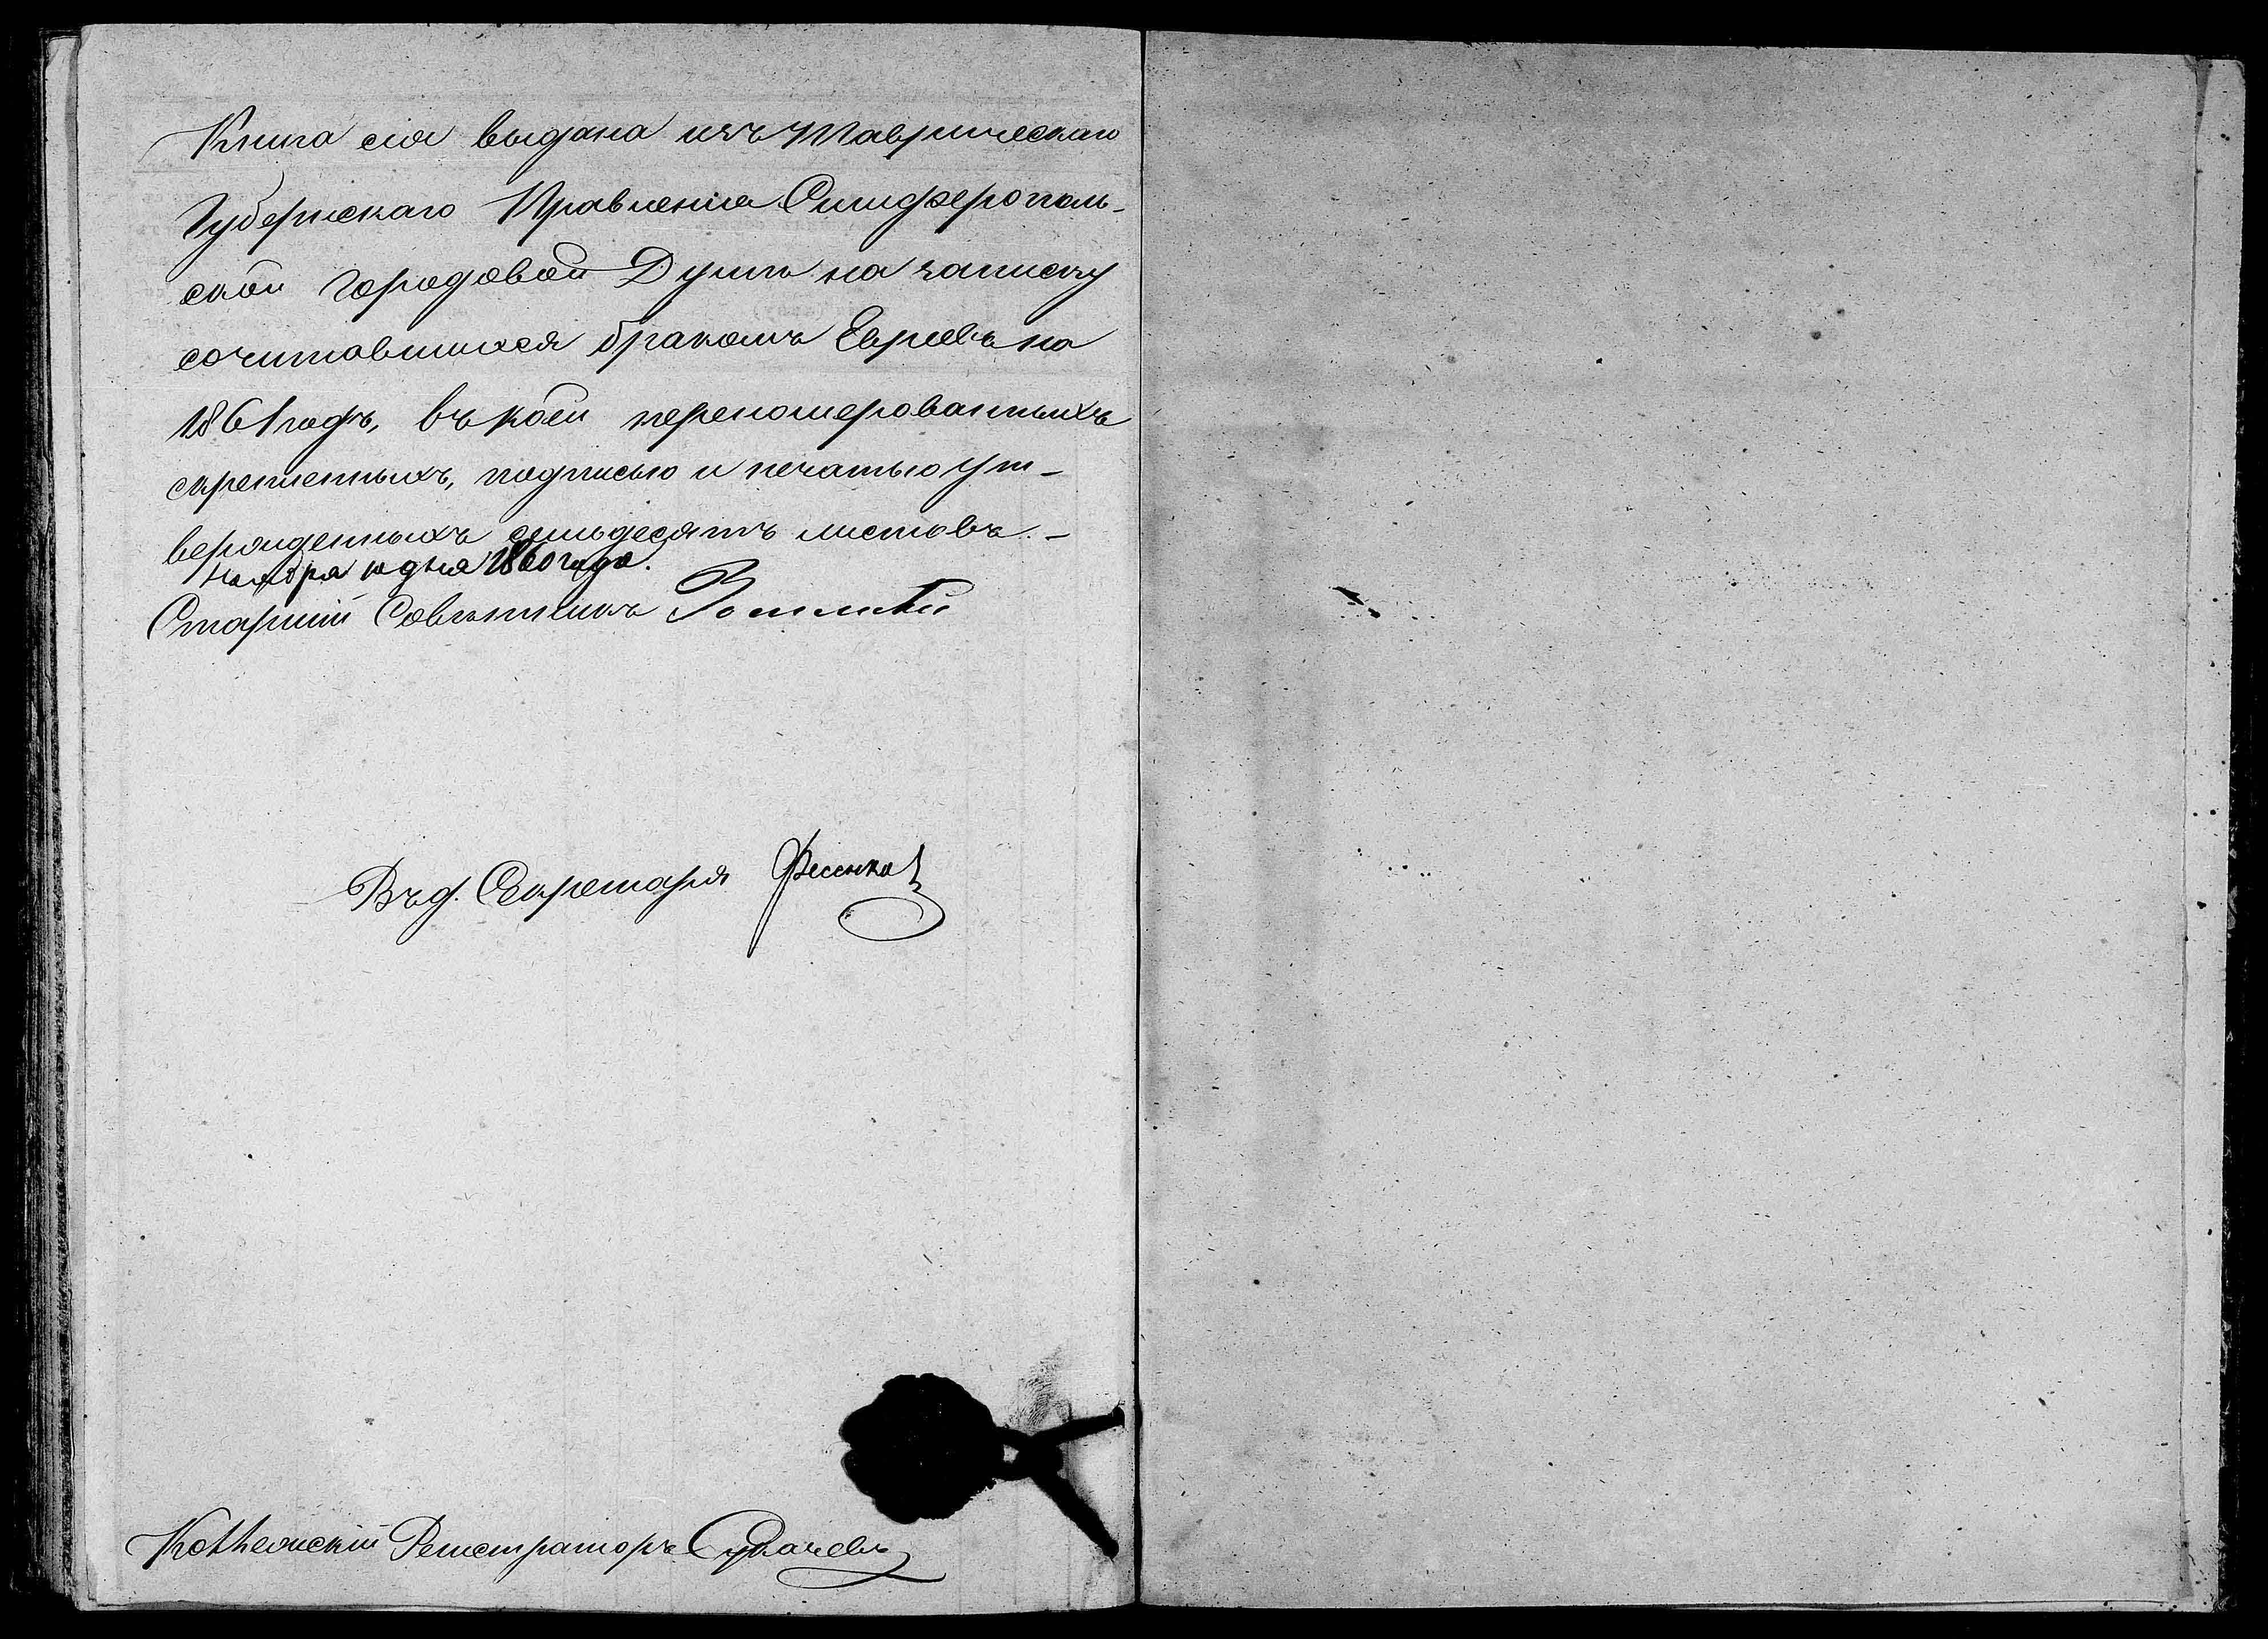 Книга сія выдана изъ Таврическаго
Губернскаго Правленія Симферополь-
ской Городовой Думѣ на записку
сочитавшихся бракомъ Евреевъ на
1861 годъ, въ коей перенумерованныхъ
скрепленныхъ, подписью и печатью ут-
вержденныхъ семьдесятъ листовъ. -
Ноября 10 дня 1860 года.
Старшій Совѣтникъ
Въ д. Секретаря Фесенко
Коллежскій Регистраторъ Сукачевъ